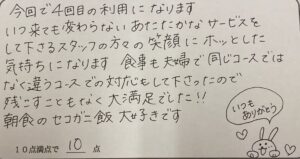 今回で4回目の利用になります
いつ来ても変わらない あたたかなサービスを
して下さるスタッフの方々の笑顔にホッとした
気持ちになります 食事も夫婦で同じコースでは
なく違うコースでの対応もして下さったので
残こすこともなく 大満足でした!!
朝食のセコガニ飯 大好きです
いつも
ありがとう
10点満点で 10 点